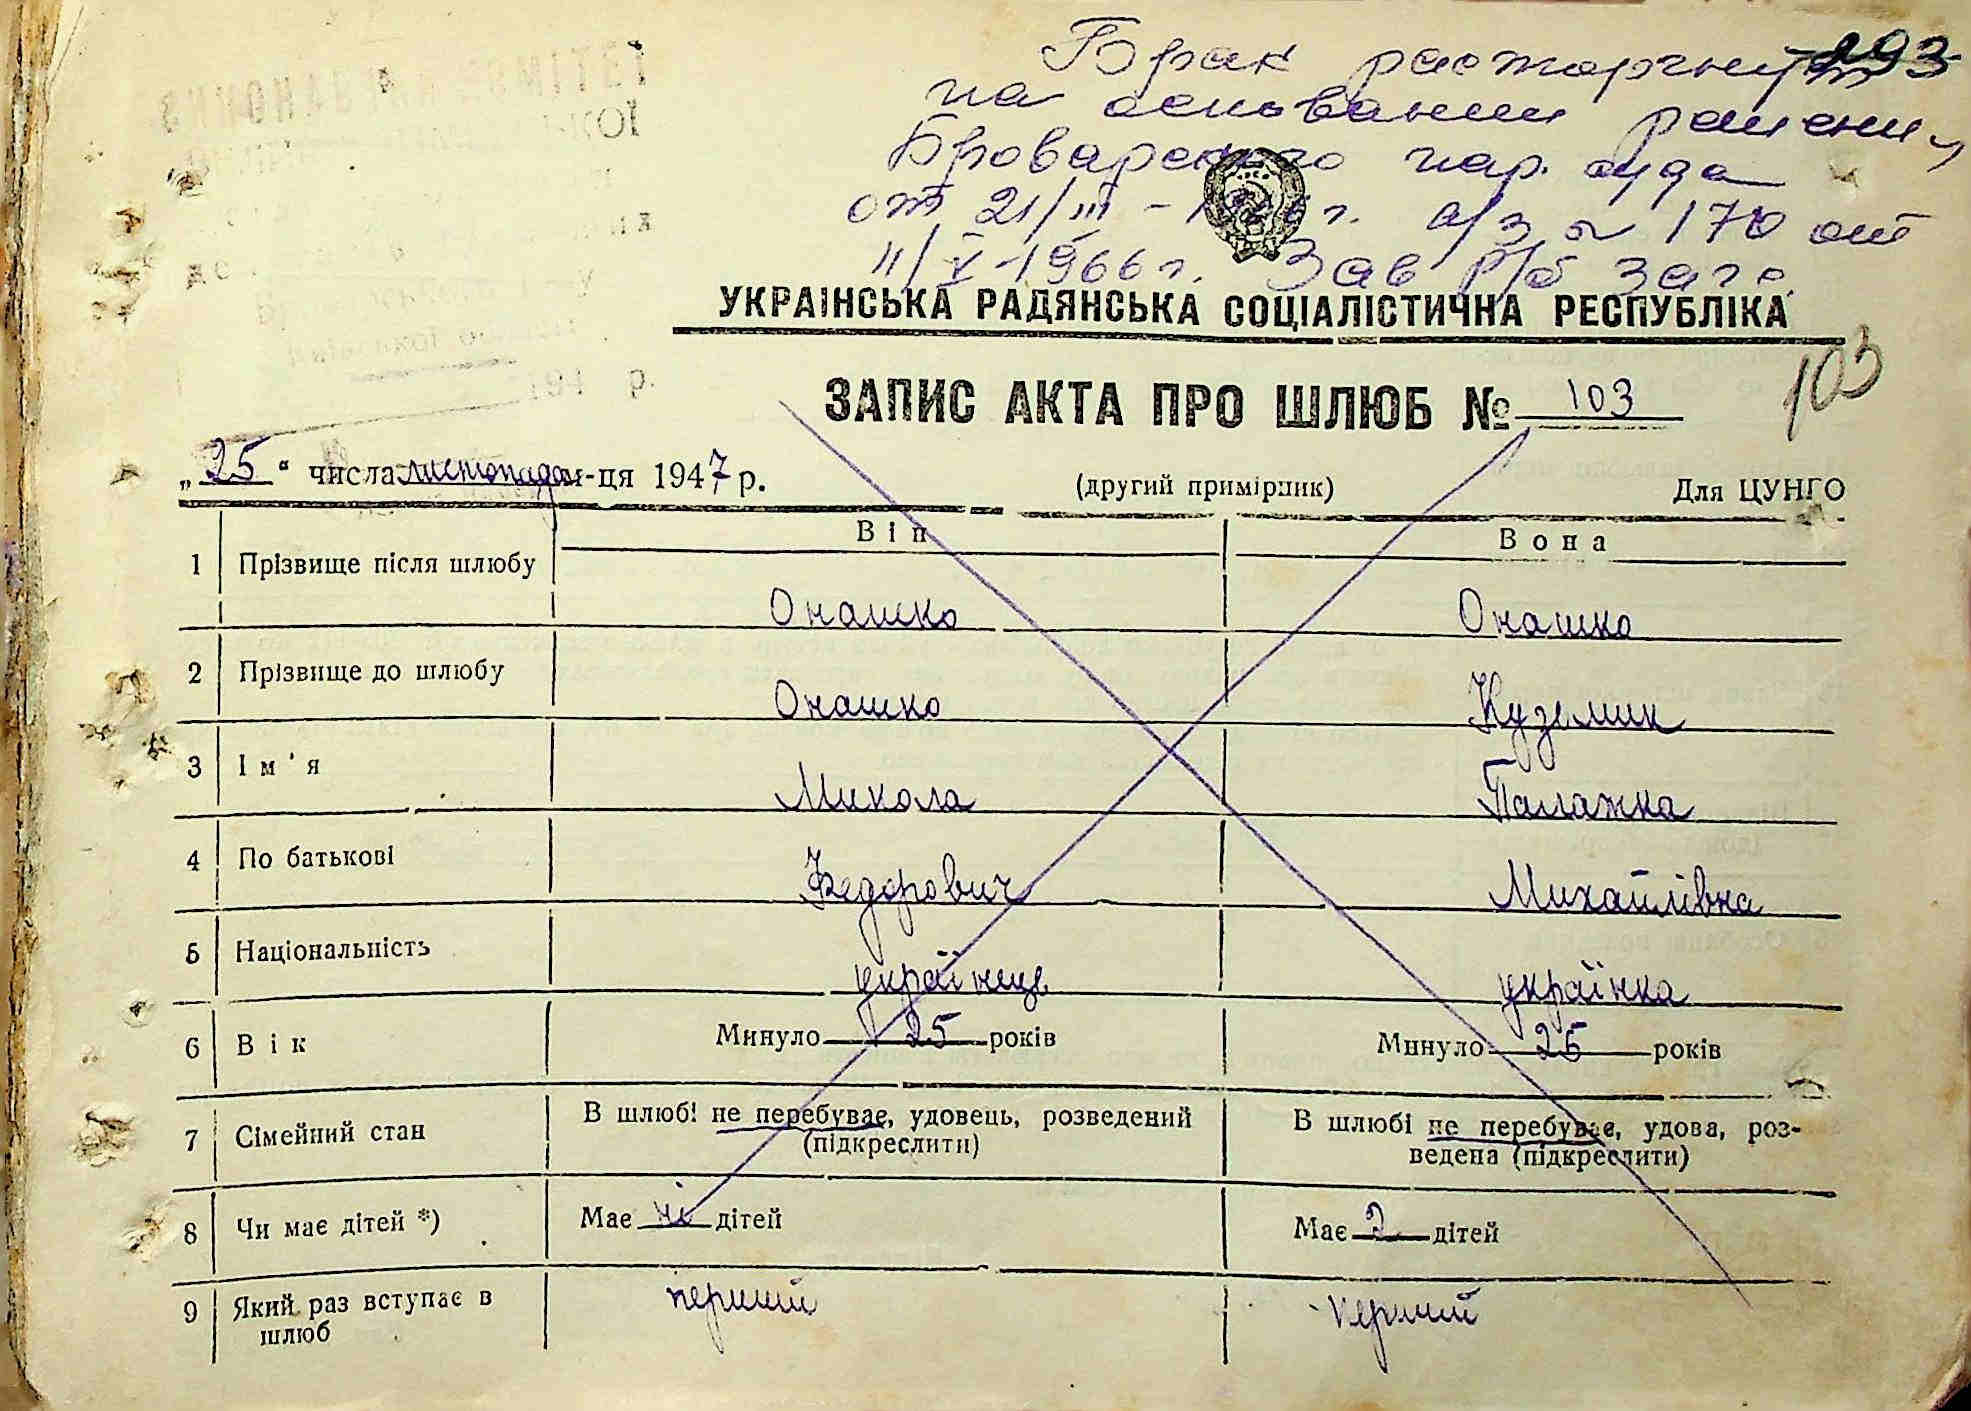 293
Брак расторгнут
на основании решения
Броварского нар. суда
от 21/III - г. а/з № 170 от
11/V-1966 г. Зав р/б загс.
УКРАЇНСЬКА РАДЯНСЬКА СОЦІАЛІСТИЧНА РЕСПУБЛІКА
103
ЗАПИС АКТА ПРО ШЛЮБ № 103
„25“ числа листопада м-ця 1947 р. (другий примірник) Для ЦУНГО
Він Вона
1 Прізвище після шлюбу Онашко Онашко
2 Прізвище до шлюбу Онашко Куземик
3 Ім'я Микола Палажка
4 По батькові Федорович Михайлівна
5 Національність українець українка
6 Вік Минуло 25 років Минуло 25 років
7 Сімейний стан В шлюбі не перебуває, удовець, розведений (підкреслити) В шлюбі не перебуває, удова, роз-
ведена (підкреслити)
8 Чи має дітей *) Має ні дітей Має 2 дітей
9 Який раз вступає в шлюб перший перший